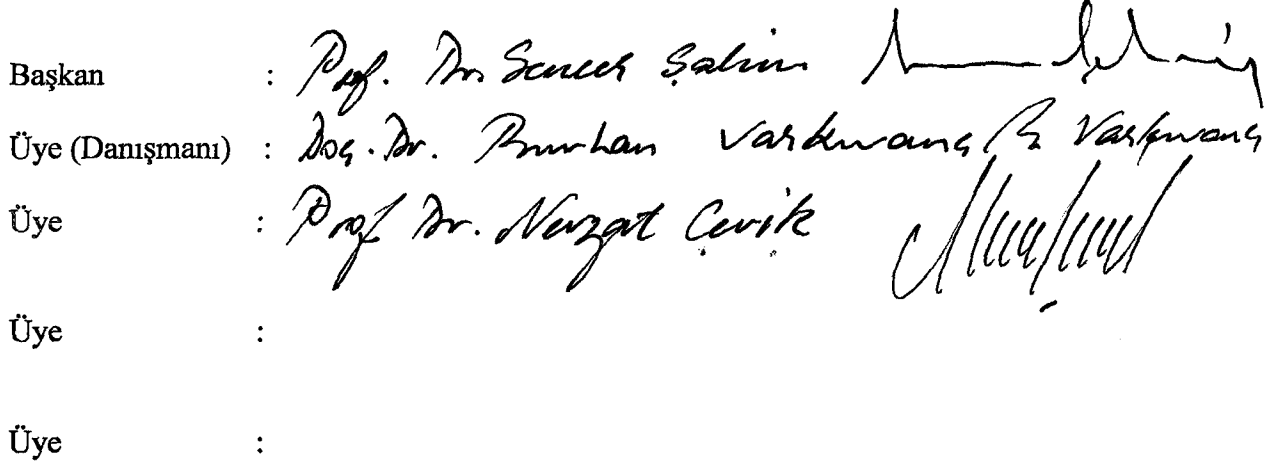 Başkan : Prof. Dr. Sencer Şahin
Üye (Danışmanı) : Doç. Dr. Burhan Varkıvanç B. Varkıvanç
Üye : Prof. Dr. Nevzat Çevik
Üye :
Üye :